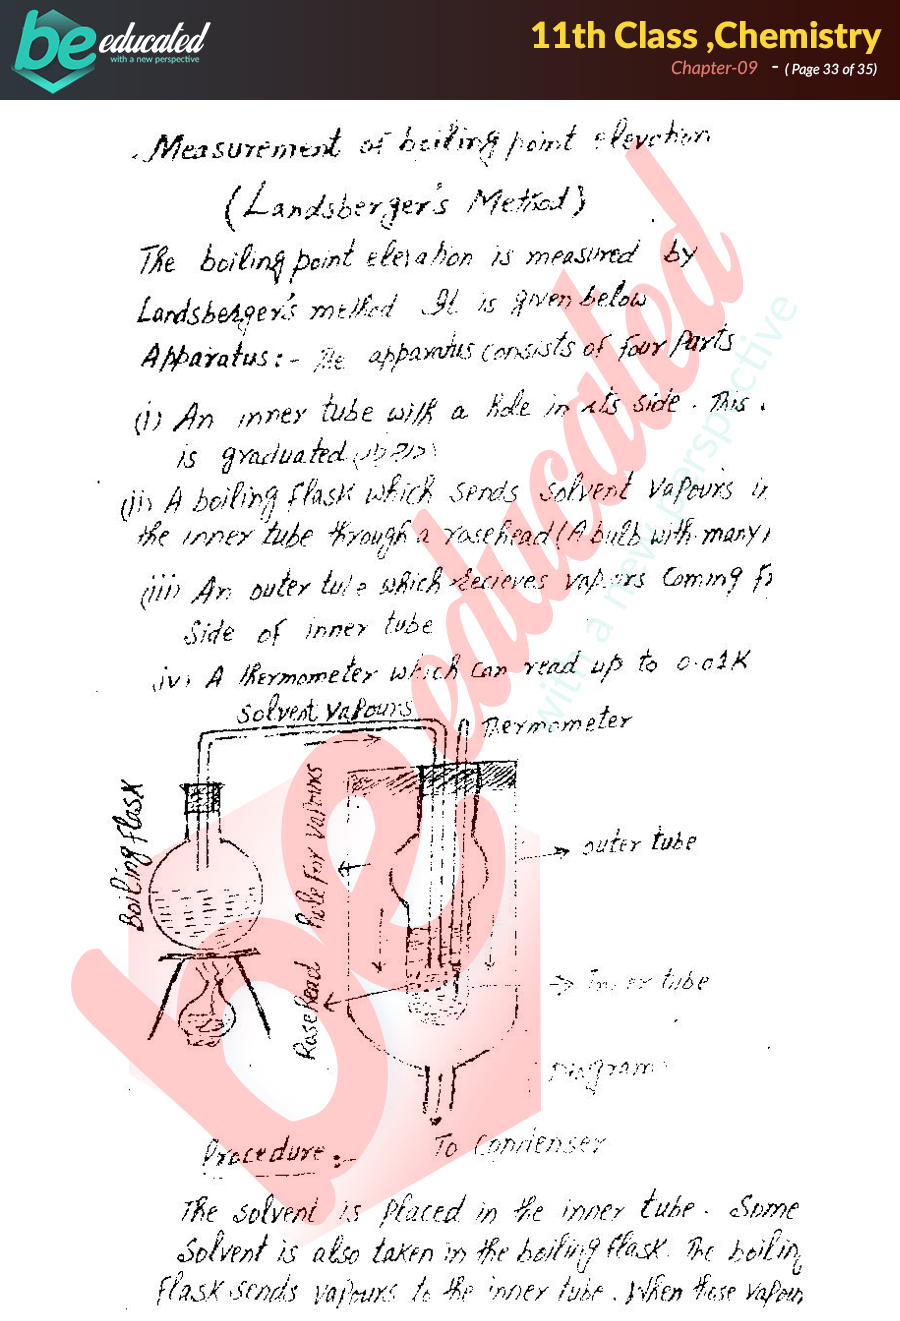 be educated
with a new perspective
11th Class ,Chemistry
Chapter-09 - ( Page 33 of 35)
Measurement of boiling point elevation
(Landsberger's Method)
The boiling point elevation is measured by
Landsberger's method It is given below
Apparatus:- The apparatus consists of four Parts
(i) An inner tube with a hole in its side. This
is graduated
(ii) A boiling flask which sends solvent vapours in
the inner tube through a rosehead (A bulb with many
(iii) An outer tube which recieves vapours coming
Side of inner tube
(iv) A thermometer which can read up to 0.01K
Solvent vapours
Thermometer
Boiling Flask
hole for vapours
outer tube
Rosehead
Inner tube
Diagram
To Condenser
Procedure:-
The solvent is placed in the inner tube. Some
Solvent is also taken in the boiling flask. The boilin
flask sends vapours to the inner tube. When these vapour
be educated
with a new perspective